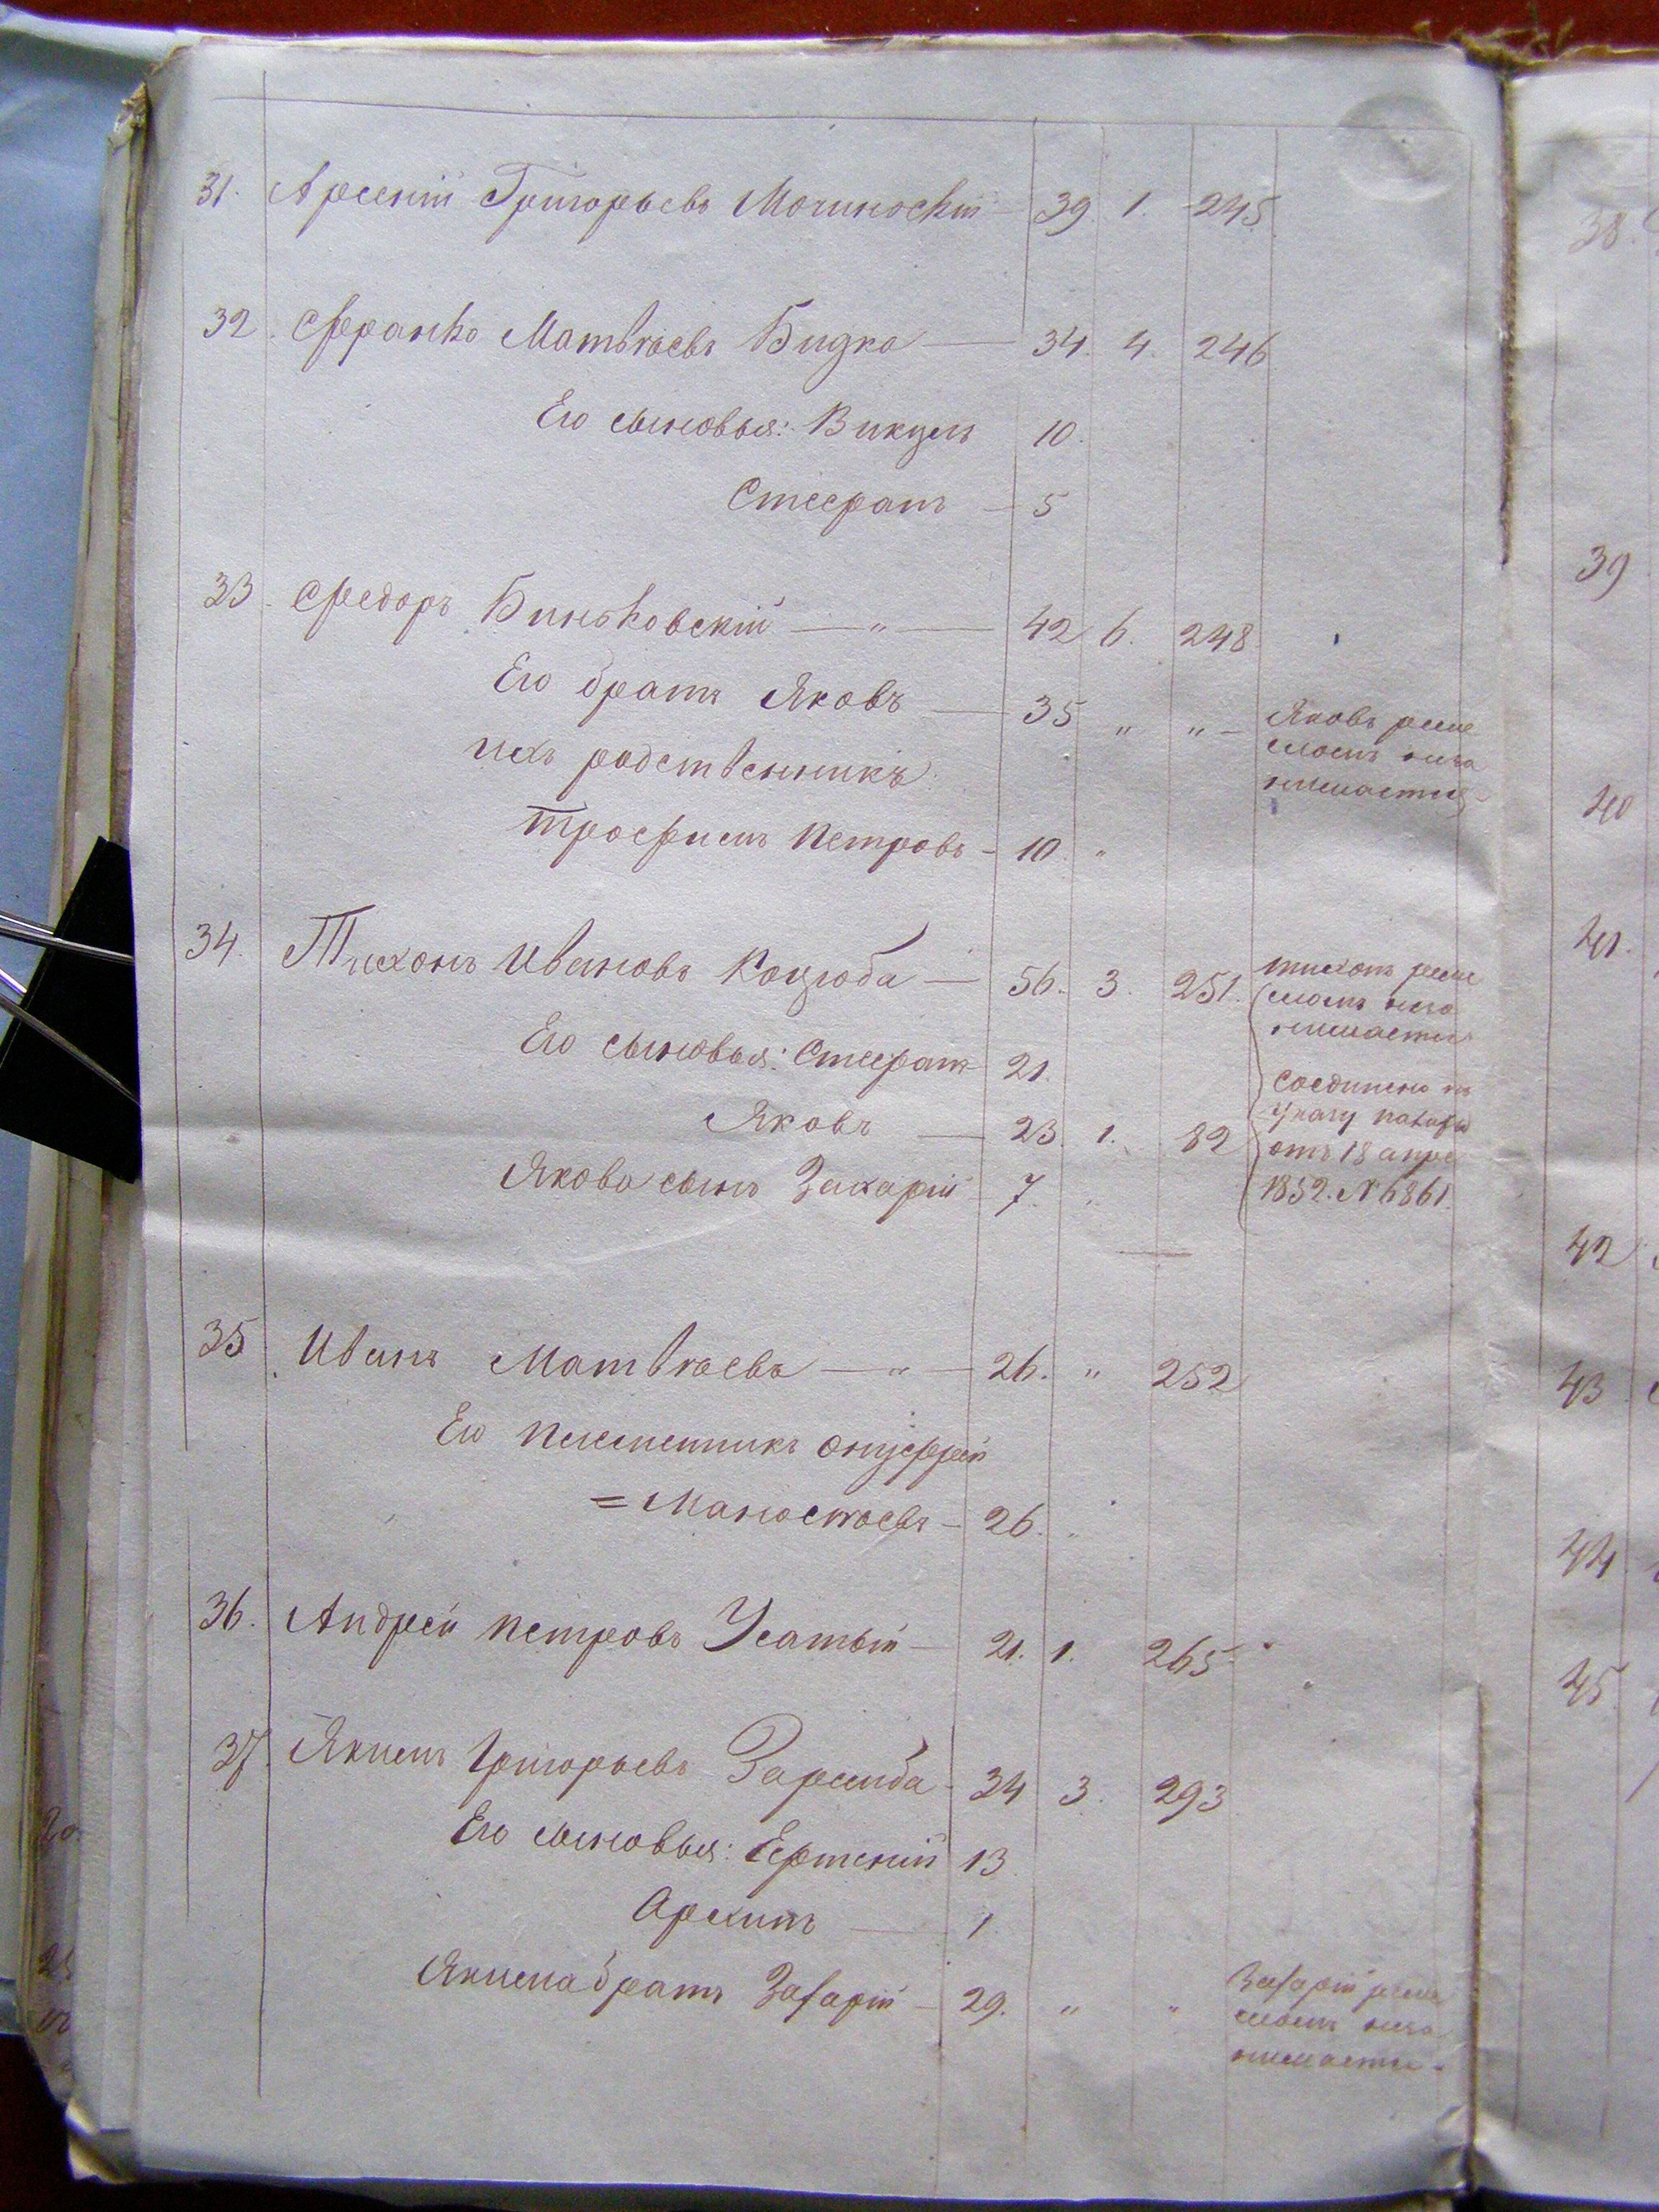 31. Арсеній Григорьевъ Могиноскій — 39. 1. 245.
32. Франко Матвѣевъ Бидка — 34. 4. 246
Его сыновья: Викулъ 10.
Стефанъ — 5
33. Федоръ Биньковскій — „ — 42 6. 248
Его братъ Яковъ — 35 „ „ — Яковъ реме
сломъ не за
нимается
ихъ родственникъ
Трофимъ Петровъ — 10. „
34. Тихонъ Ивановъ Коцюба — 56. 3. 251. Тихонъ реме
сломъ не за
нимается
Его сыновья: Стефанъ 21.
Яковъ — 23. 1. 82
Якова сынъ Захарій 7. „
Соединено по
Указу палаты
отъ 18 апре
1852. № 6861.
35 Иванъ Матвѣевъ — „ — 26. „ 252
Его племянникъ Онуфрій
= — 26. „
36. Андрей Петровъ Усатый — 21. 1. 265
37. Якимъ Григорьевъ Заремба — 34 3. 293
Его сыновья: 13
Архипъ — 1
Якима братъ Захарій — 29. „ „ Захарій реме
сломъ не за
нимается.
38.
39
40
41.
42
43
44
45